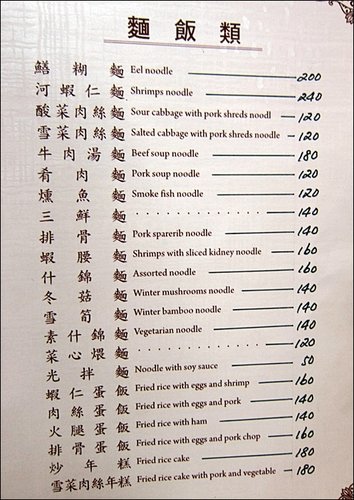 麵 飯 類
鱔糊麵 Eel noodle 200
河蝦仁麵 Shrimps noodle 240
酸菜肉絲麵 Sour cabbage with pork shreds noodl 120
雪菜肉絲麵 Salted cabbage with pork shreds noodle 120
牛肉湯麵 Beef soup noodle 180
肴肉麵 Pork soup noodle 120
燻魚麵 Smoke fish noodle 120
三鮮麵 140
排骨麵 Pork sparerib noodle 140
蝦腰麵 Shrimps with sliced kidney noodle 160
什錦麵 Assorted noodle 160
冬菇麵 Winter mushrooms noodle 140
雪筍麵 Winter bamboo noodle 140
素什錦麵 Vegetarian noodle 140
菜心煨麵 120
光拌麵 Noodle with soy sauce 50
蝦仁蛋飯 Fried rice with eggs and shrimp 160
肉絲蛋飯 Fried rice with eggs and pork 140
火腿蛋飯 Fried rice with ham 140
排骨蛋飯 Fried rice with eggs and pork chop 160
炒年糕 Fried rice cake 180
雪菜肉絲年糕 Fried rice cake with pork and vegetable 180